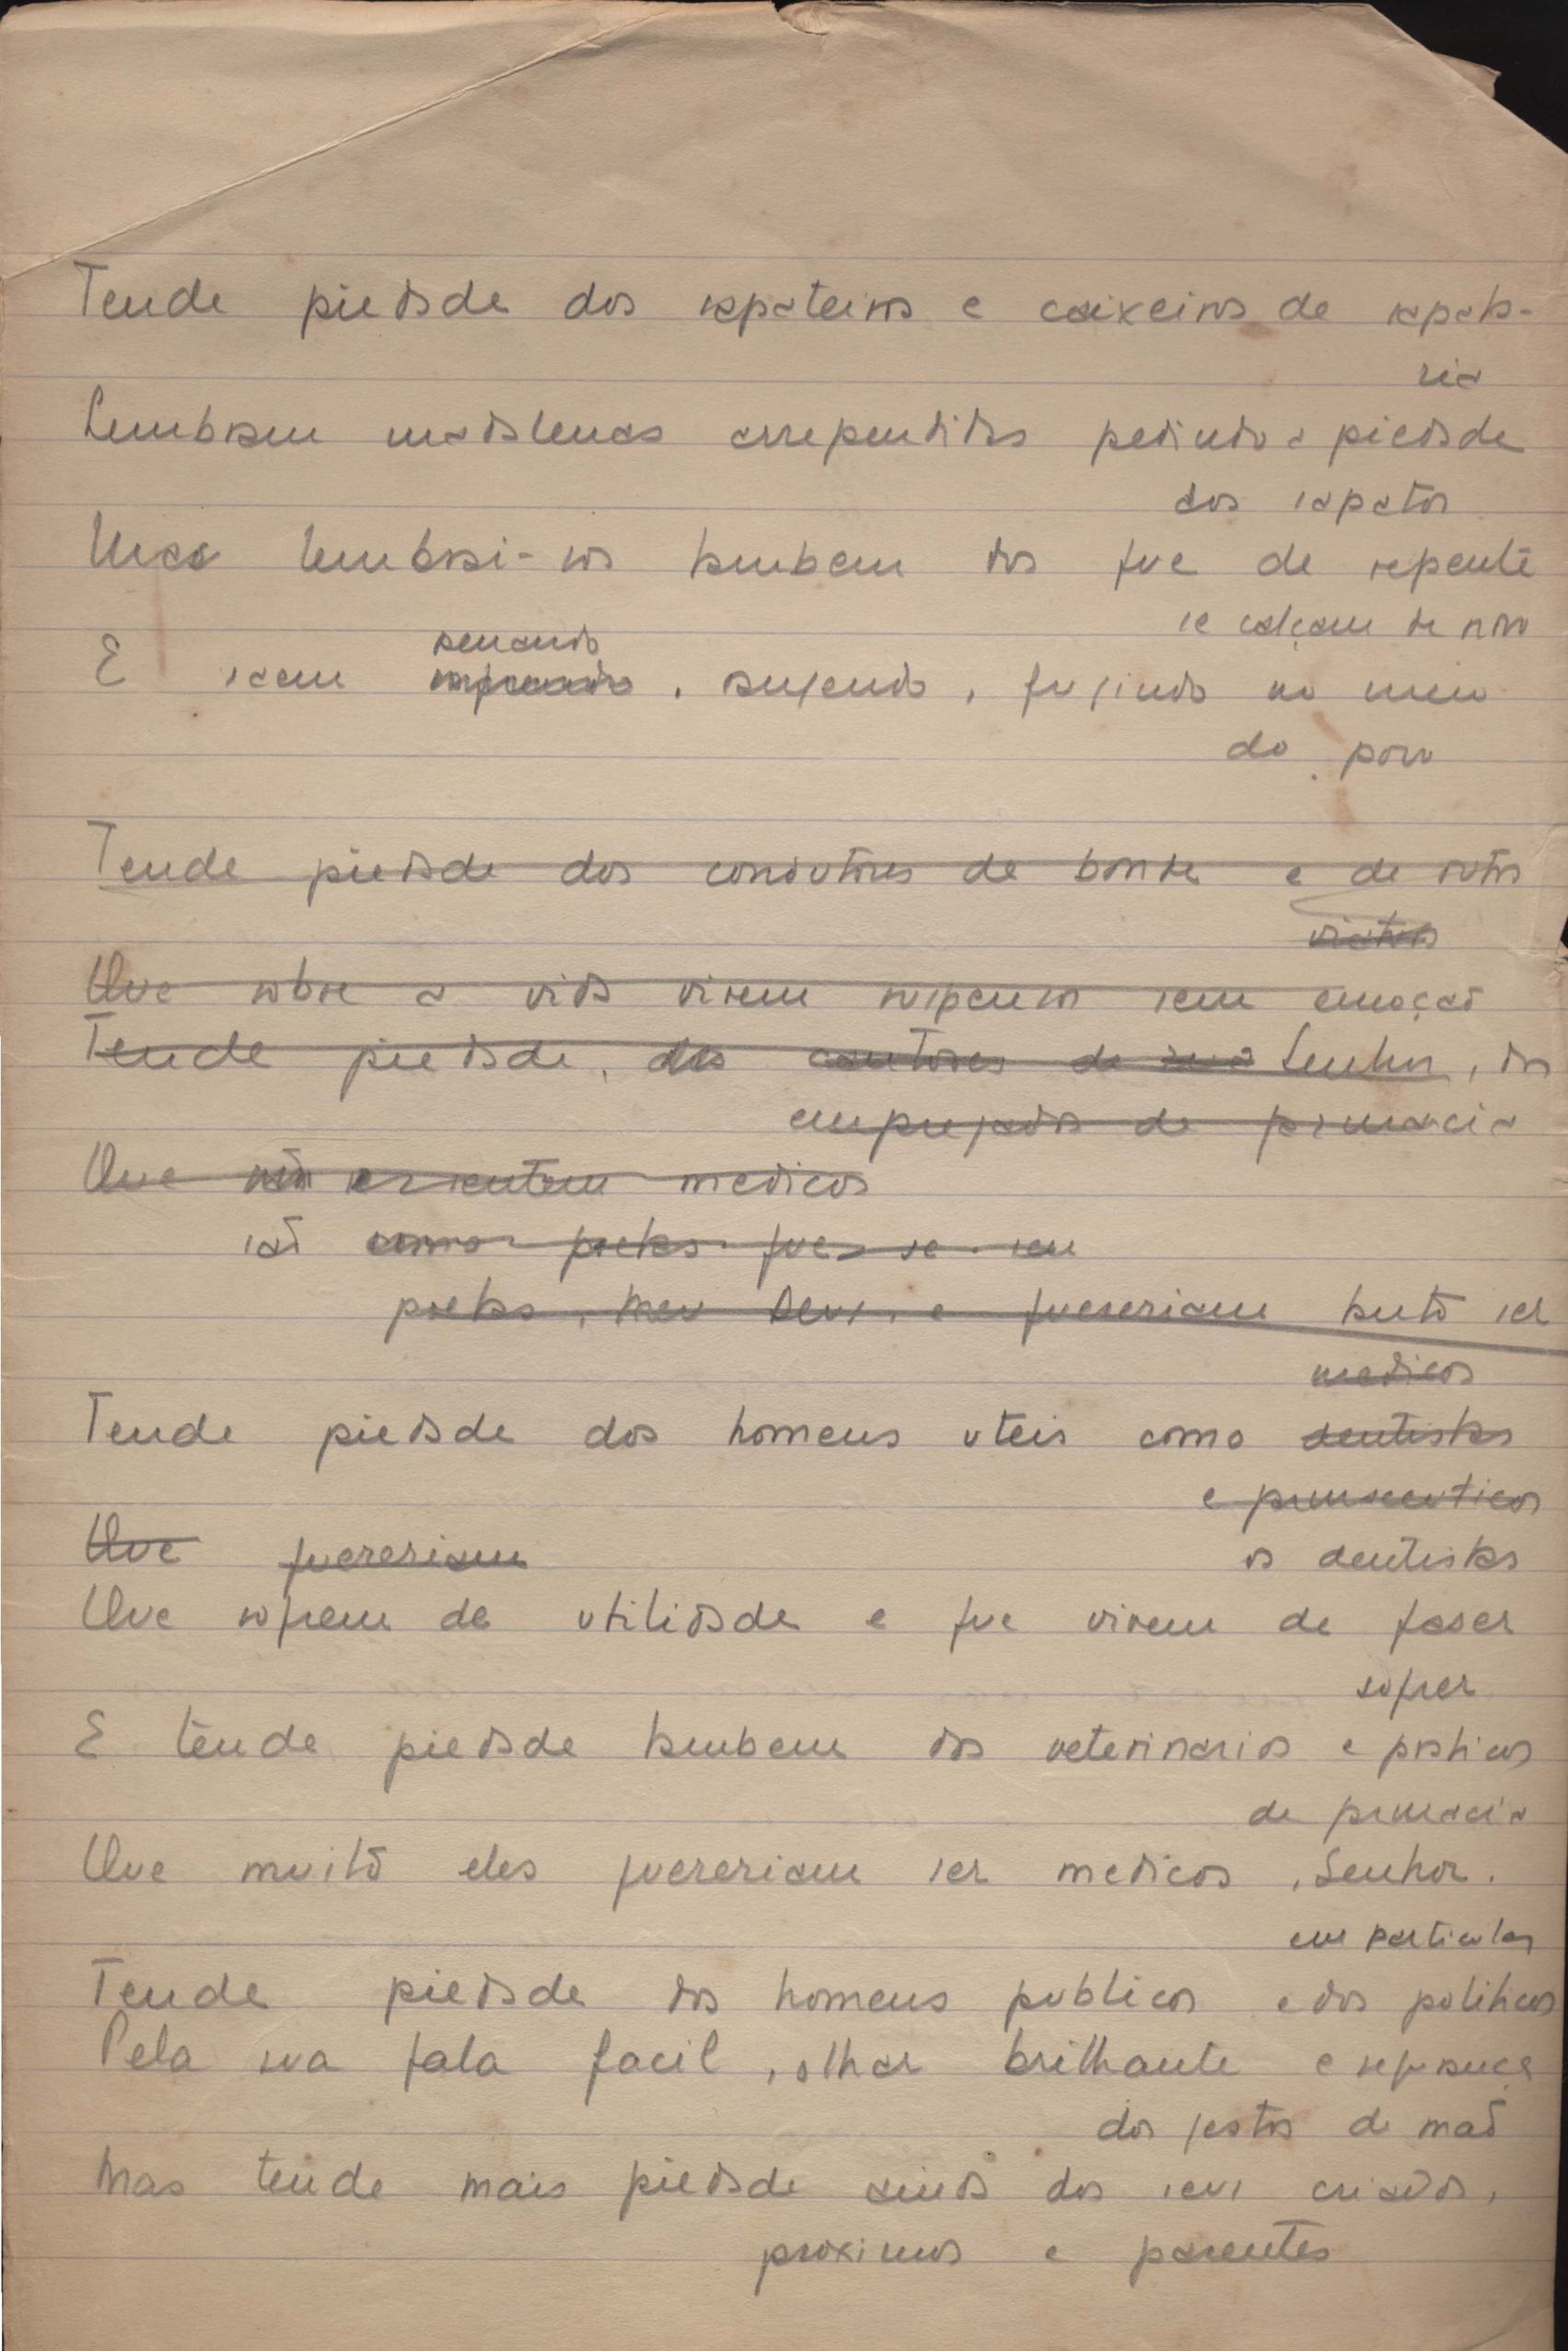 Tende piedade dos sapateiros e caixeiros de sapata-
ria
Lembram madalenas arrependidas pedindo a piedade
dos sapatos
Mas lembrai-vos tambem dos que de repente
se calçam de novo
penando
E saem , sangendo, fugindo no meio
do povo
Tende piedade dos condutores de bonde e de autos
viaturas
Que sobre a vida vivem suspensos sem emoção
Tende piedade, dos cantores de rua Senhor, dos
empregados de farmacia
Que não se sentem medicos
são como poetas que se sem
poetas, meu Deus, e quereriam tanto ser
medicos
Tende piedade dos homens uteis como dentistas
e farmaceuticos
Que quereriam os dentistas
Que sofrem de utilidade e que vivem de faser
sofrer
E tende piedade tambem dos veterinarios e praticos
de farmacia
Que muito eles quereriam ser medicos, Senhor.
em particular
Tende piedade dos homens publicos e dos politicos
Pela sua fala facil, olhar brilhante e segurança
dos gestos de mão
Mas tende mais piedade ainda dos seus criados,
proximos e parentes